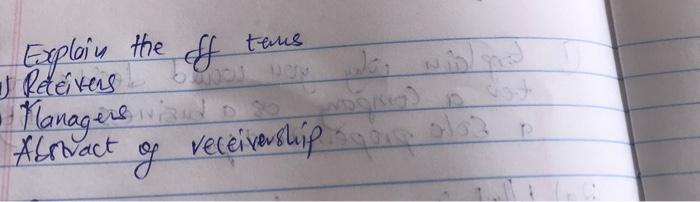 Explain the ff tems
1) Receivers
Managers
Abstract of receivership